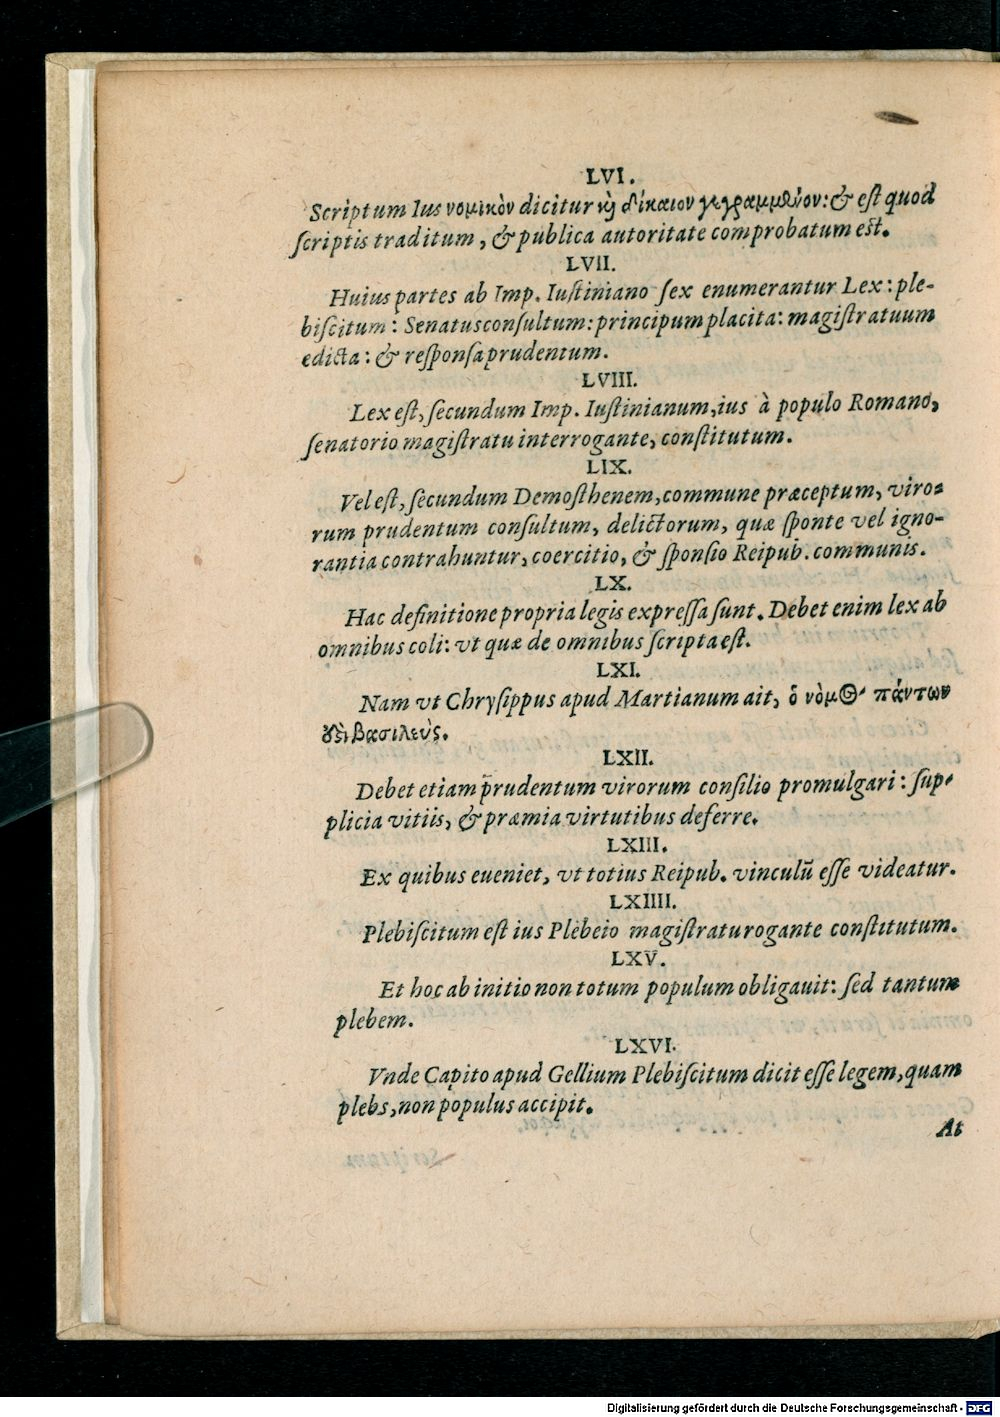 LVI.
Scriptum Ius νομικὸν dicitur καὶ δίκαιον γεγραμμένον: & est quod
scriptis traditum, & publica autoritate comprobatum est.
LVII.
Huius partes ab Imp. Iustiniano sex enumerantur Lex: ple-
biscitum: Senatusconsultum: principum placita: magistratuum
edicta: & responsa prudentum.
LVIII.
Lex est, secundum Imp. Iustinianum, ius à populo Romano,
senatorio magistratu interrogante, constitutum.
LIX.
Vel est, secundum Demosthenem, commune præceptum, viro-
rum prudentum consultum, delictorum, quæ sponte vel igno-
rantia contrahuntur, coercitio, & sponsio Reipub. communis.
LX.
Hac definitione propria legis expressa sunt. Debet enim lex ab
omnibus coli: vt quæ de omnibus scripta est.
LXI.
Nam vt Chrysippus apud Martianum ait, ὁ νὸμος πάντων
ἐστὶ βασιλεὺς.
LXII.
Debet etiam prudentum virorum consilio promulgari: sup-
plicia vitiis, & præmia virtutibus deferre.
LXIII.
Ex quibus eueniet, vt totius Reipub. vinculũ esse videatur.
LXIIII.
Plebiscitum est ius Plebeio magistratu rogante constitutum.
LXV.
Et hoc ab initio non totum populum obligauit: sed tantum
plebem.
LXVI.
Vnde Capito apud Gellium Plebiscitum dicit esse legem, quam
plebs, non populus accipit.
At
Digitalisierung gefördert durch die Deutsche Forschungsgemeinschaft - DFG